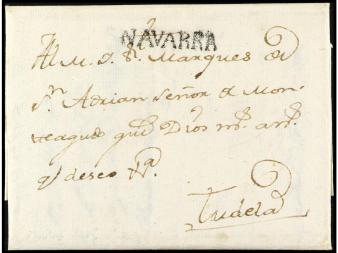 NAVARRA
Al M. S. Sr. Marques de
Sn. Adrian Señor de Mon-
teagudo que Dios ms. ans.
qe deseo
Tudela